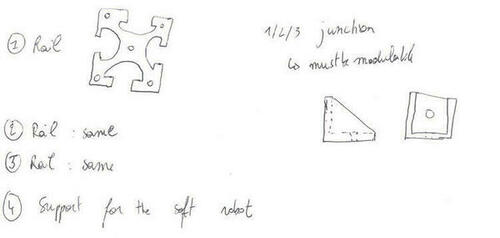 ① Rail
② Rail : same
③ Rail : same
④ Support for the soft robot
1/2/3 junction
↳ must be modulable